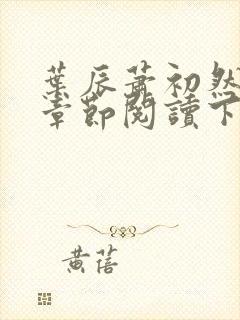 葉辰蕭初然
章節閱讀下
黃蓓